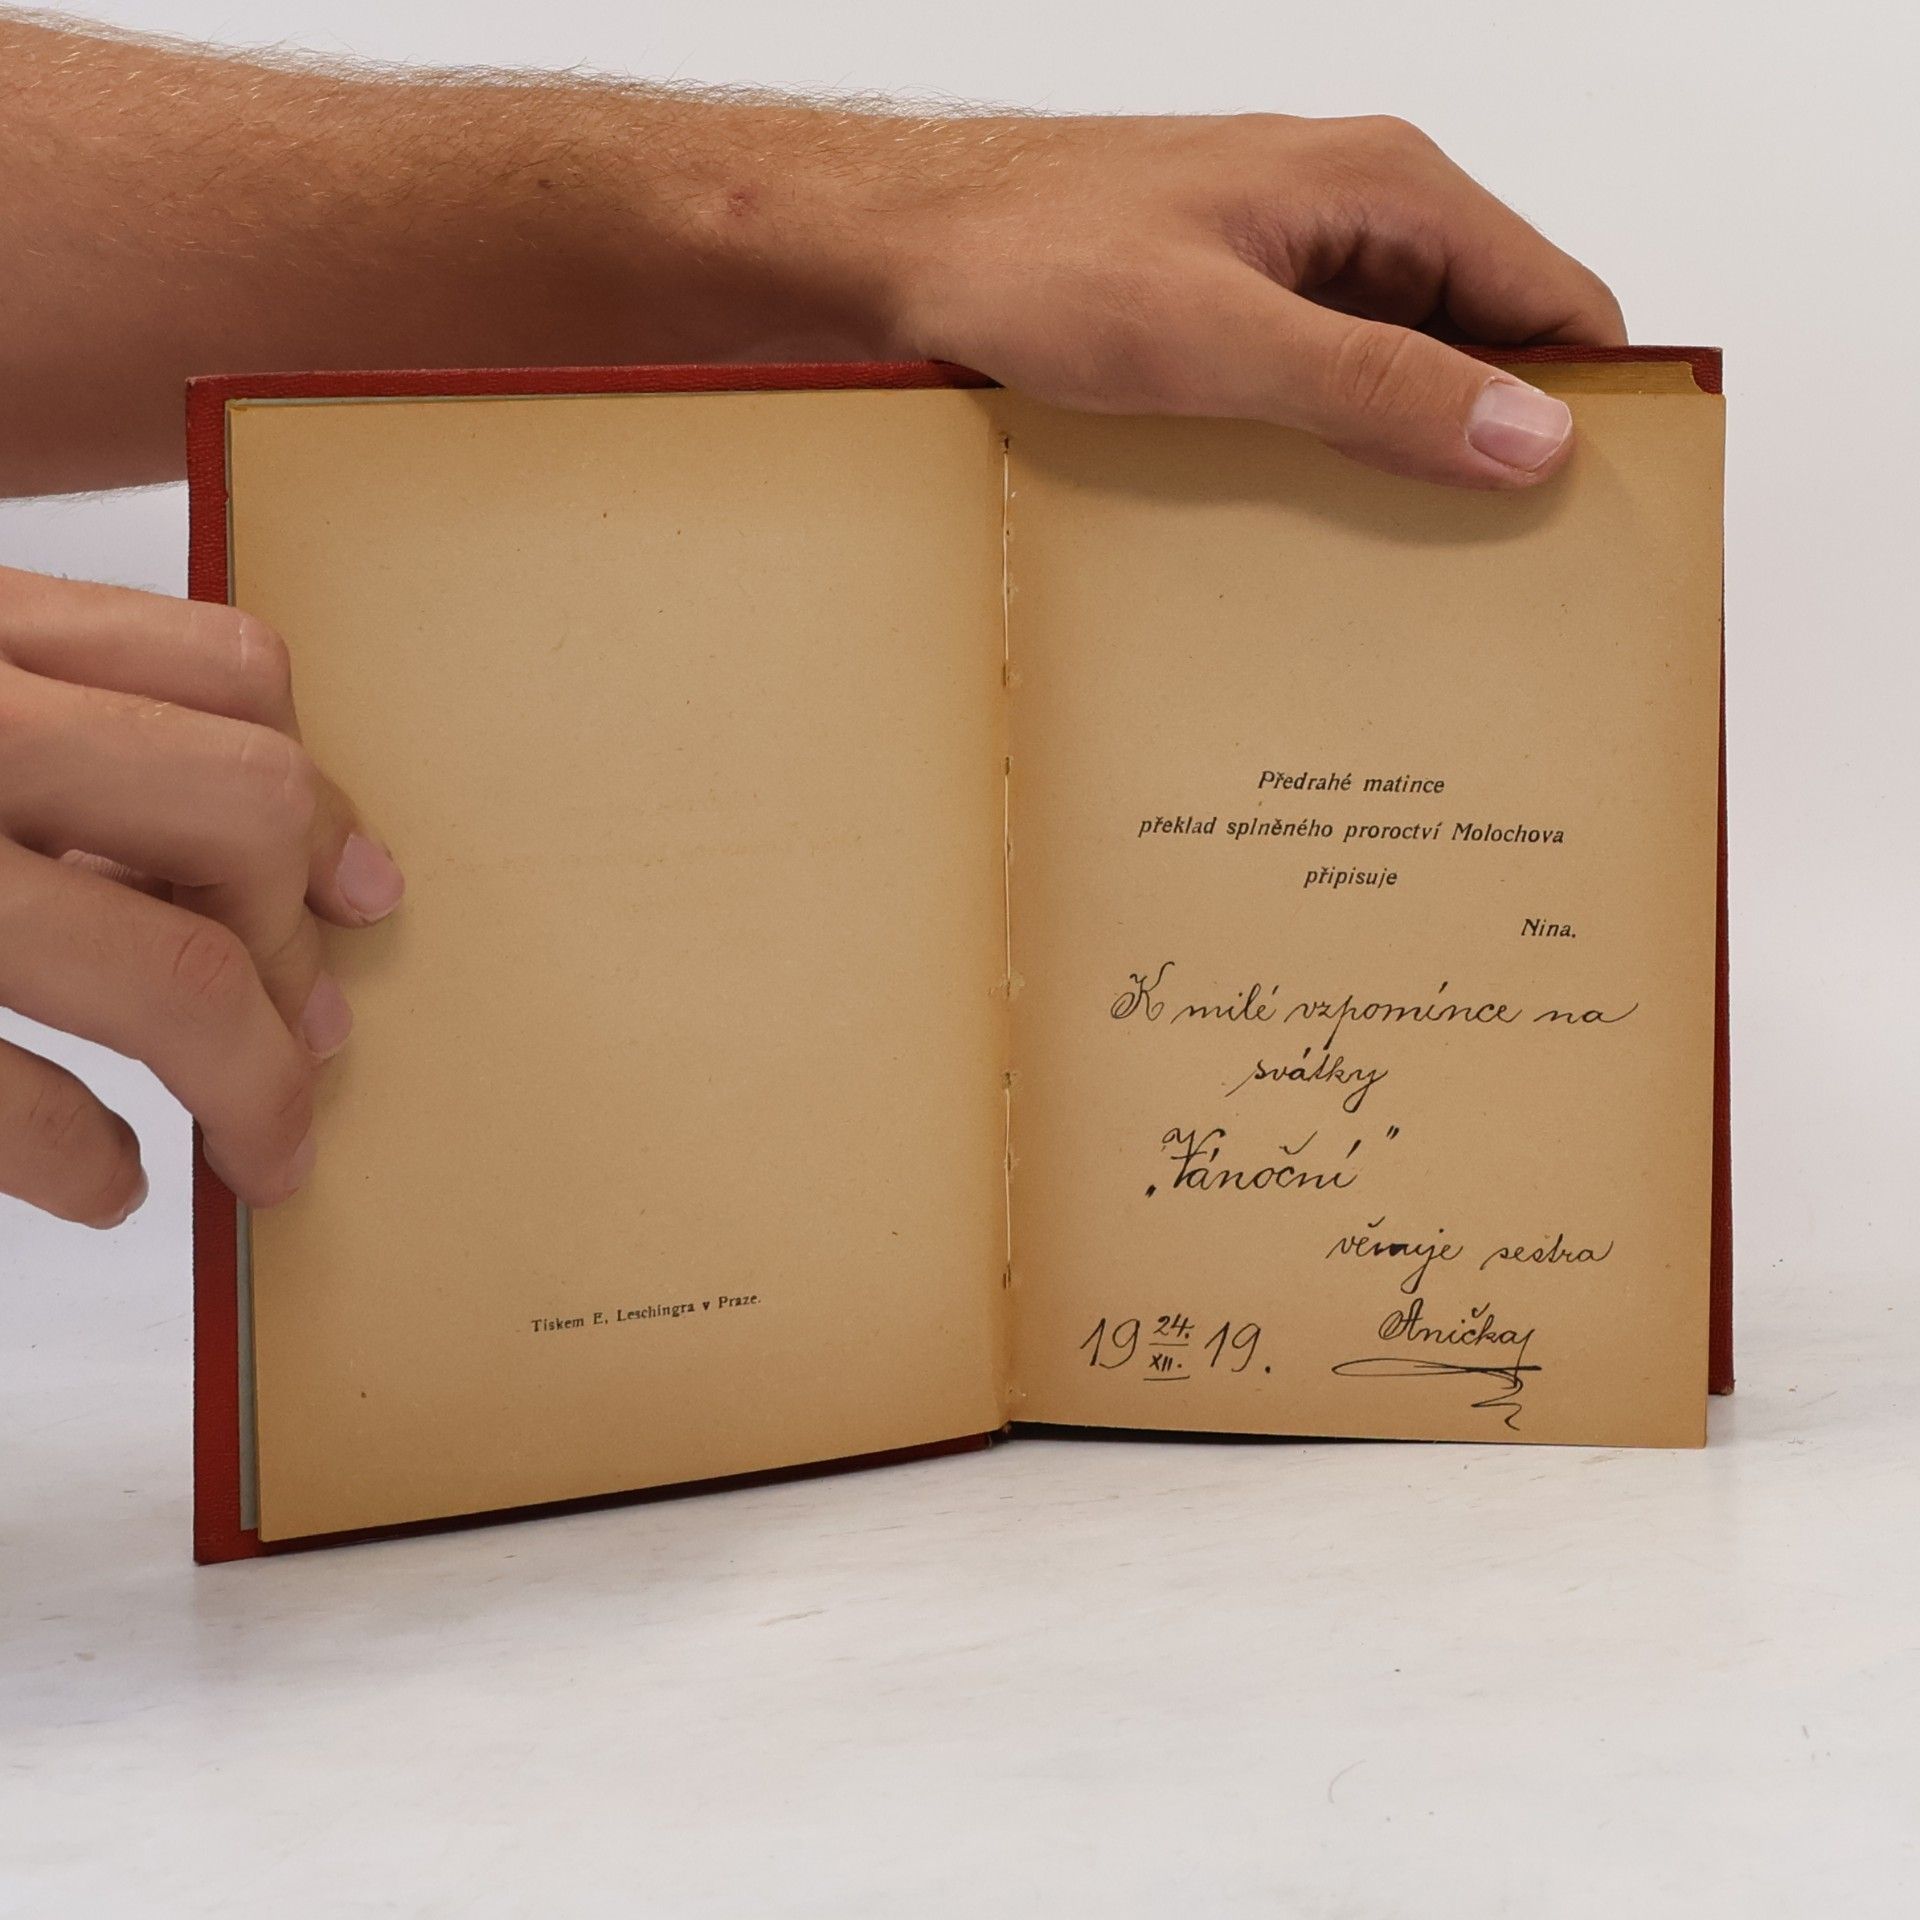 Tiskem E. Leschingra v Praze.
Předrahé matince
překlad splněného proroctví Molochova
připisuje
Nina.
K milé vzpomínce na
svátky
„Vánoční"
věnuje sestra
Anička
19 24./XII. 19.